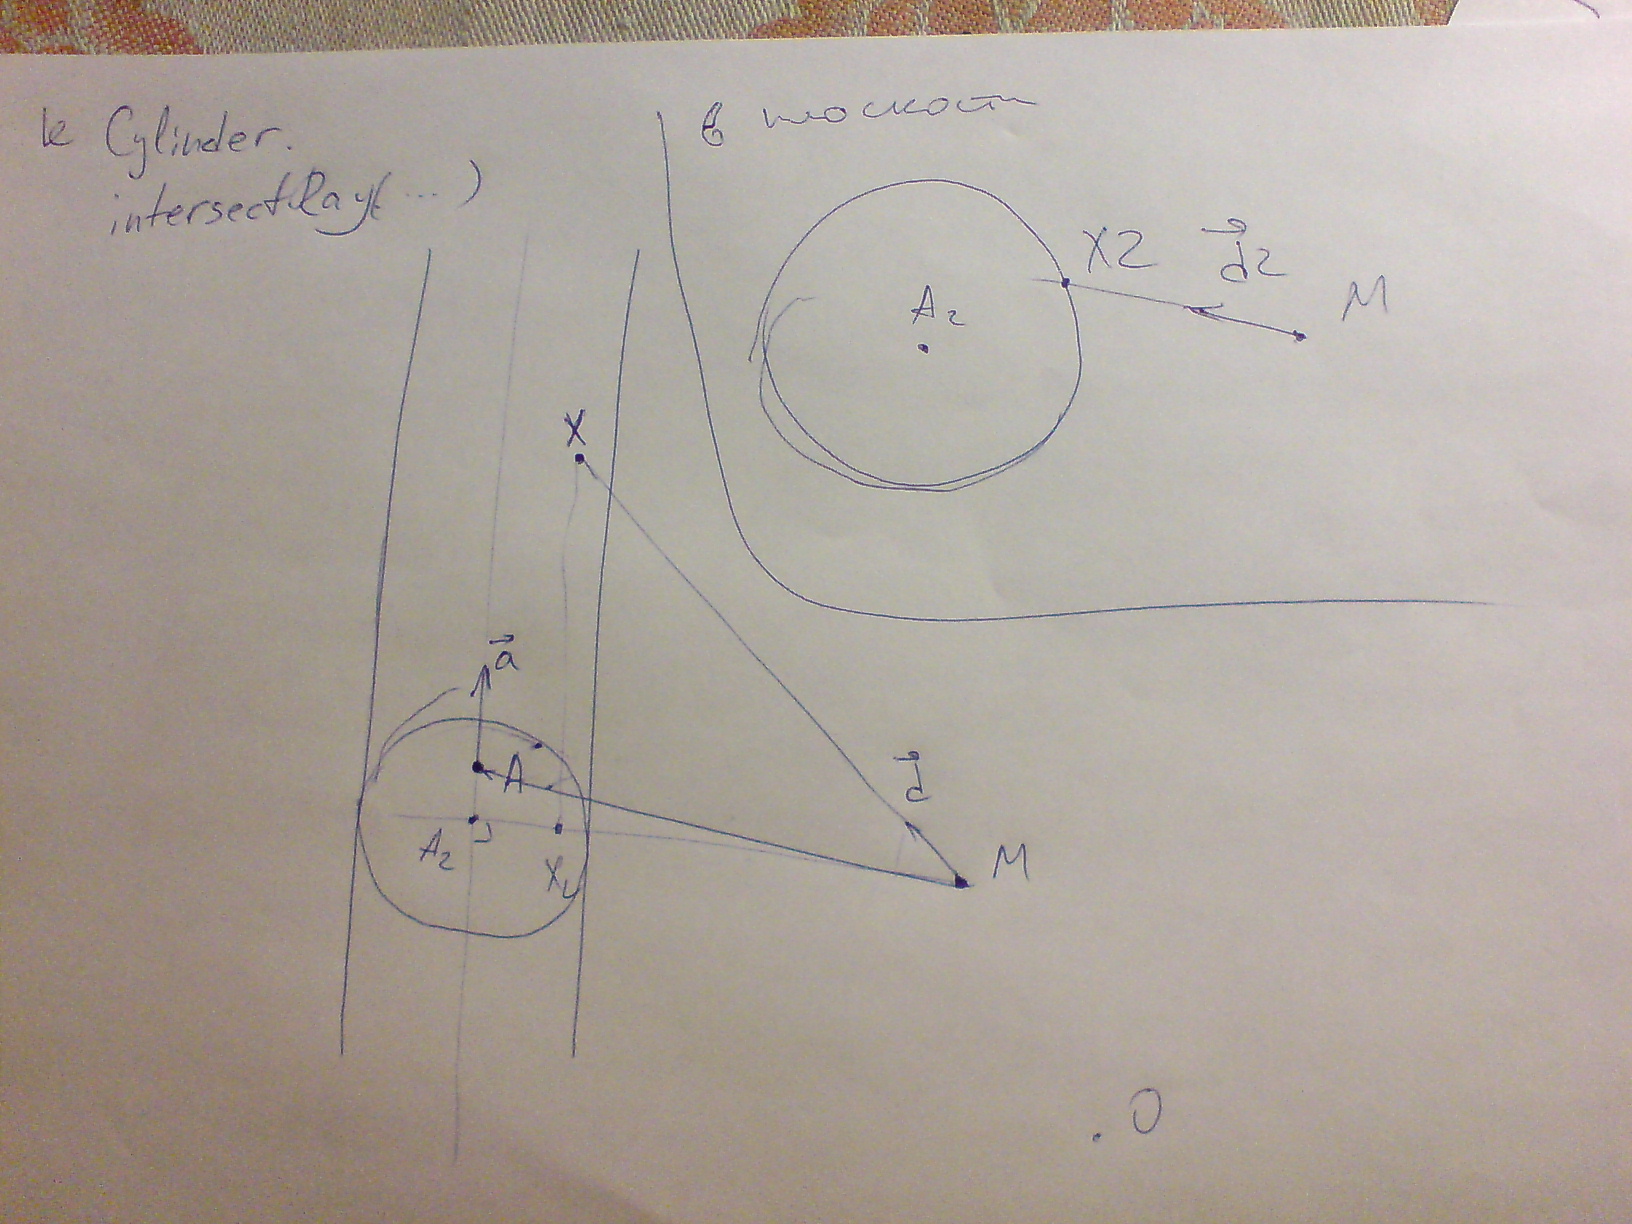 к Cylinder.
intersectRay(...)
в плоскости
X2
d2
M
A2
X
a
A
d
A2
X2
M
O